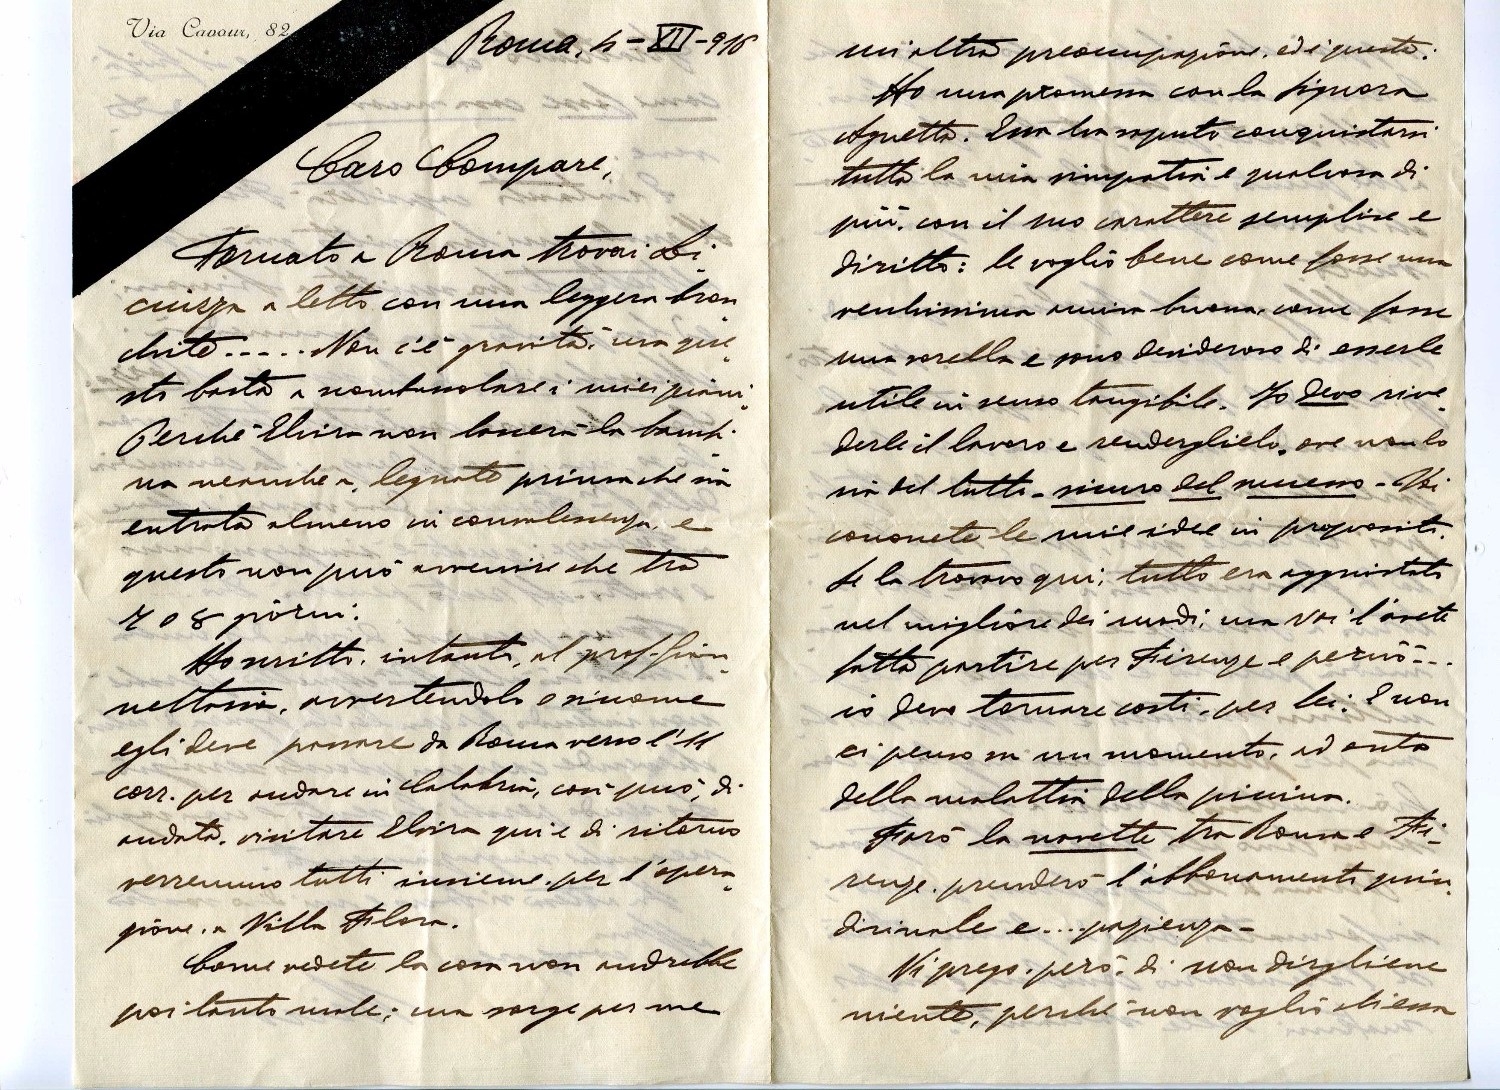 Via Cavour, 82
Roma, 4-XII-916
Caro Compare,
Tornato a Roma trovai Li-
ciuzza a letto con una leggera bron-
chite..... Non c'è gravità, ma que-
sto basta a scombussolare i miei piani.
Perché Elvira non lascerà la bambi-
na neanche a, legnate prima che sia
entrata almeno in convalescenza, e
questo non può avvenire che tra
7 o 8 giorni.
Ho scritto, intanto, al prof.
avvertendolo e siccome
egli deve passare da Roma verso l'11
corr. per andare in Calabria, così può, di
andata, visitare Elvira qui e di ritorno
verremmo tutti insieme, per l'opera-
zione, a Villa Flora.
Come vedete la cosa non andrebbe
poi tanto male; ma sorge per me
un'altra preoccupazione, ed è questa:
Ho una promessa con la signora
Agnetta. Essa ha saputo conquistarsi
tutta la mia simpatia e qualcosa di
più, con il suo carattere semplice e
diritto: le voglio bene come fosse una
vecchissima amica buona, come fosse
una sorella e sono desideroso di esserle
utile in senso tangibile. Io devo rive-
derle il lavoro e renderglielo, ove non lo
sia del tutto - sicuro del successo - Voi
conoscete le mie idee in proposito.
Se la trovavo qui, tutto era aggiustato
nel migliore dei modi; ma voi l'avete
fatta partire per Firenze e perciò...
io devo tornare costì, per lei. E non
ci penso su un momento, ad onta
della malattia della piccina.
Farò la navette tra Roma e Fi-
renze, prenderò l'abbonamento quin-
dicinale e... pazienza -
Vi prego, però, di non dirgliene
niente, perché non voglio ch'essa